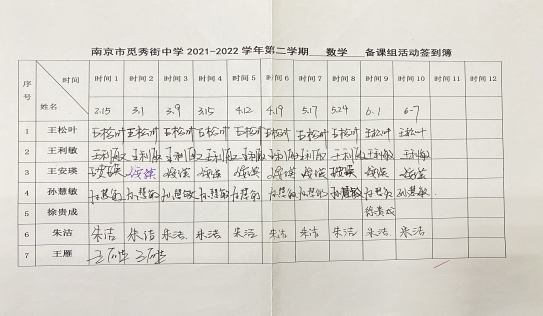 南京市觅秀街中学 2021-2022 学年第二学期 数学 备课组活动签到簿
序号 时间 姓名 时间 1 时间 2 时间 3 时间 4 时间 5 时间 6 时间 7 时间 8 时间 9 时间 10 时间 11 时间 12
2.15 3.1 3.9 3.15 4.12 4.19 5.17 5.24 6.1 6-7
1 王松叶 王松叶 王松叶 王松叶 王松叶 王松叶 王松叶 王松叶 王松叶 王松叶 王松叶
2 王利敏 王利敏 王利敏 王利敏 王利敏 王利敏 王利敏 王利敏 王利敏 王利敏 王利敏
3 王安瑛 王安瑛
4 孙慧敏 孙慧敏 孙慧敏 孙慧敏 孙慧敏 孙慧敏 孙慧敏 孙慧敏 孙慧敏 孙慧敏 孙慧敏
5 徐贵成 徐贵成
6 朱洁 朱洁 朱洁 朱洁 朱洁 朱洁 朱洁 朱洁 朱洁 朱洁 朱洁
7 王雁